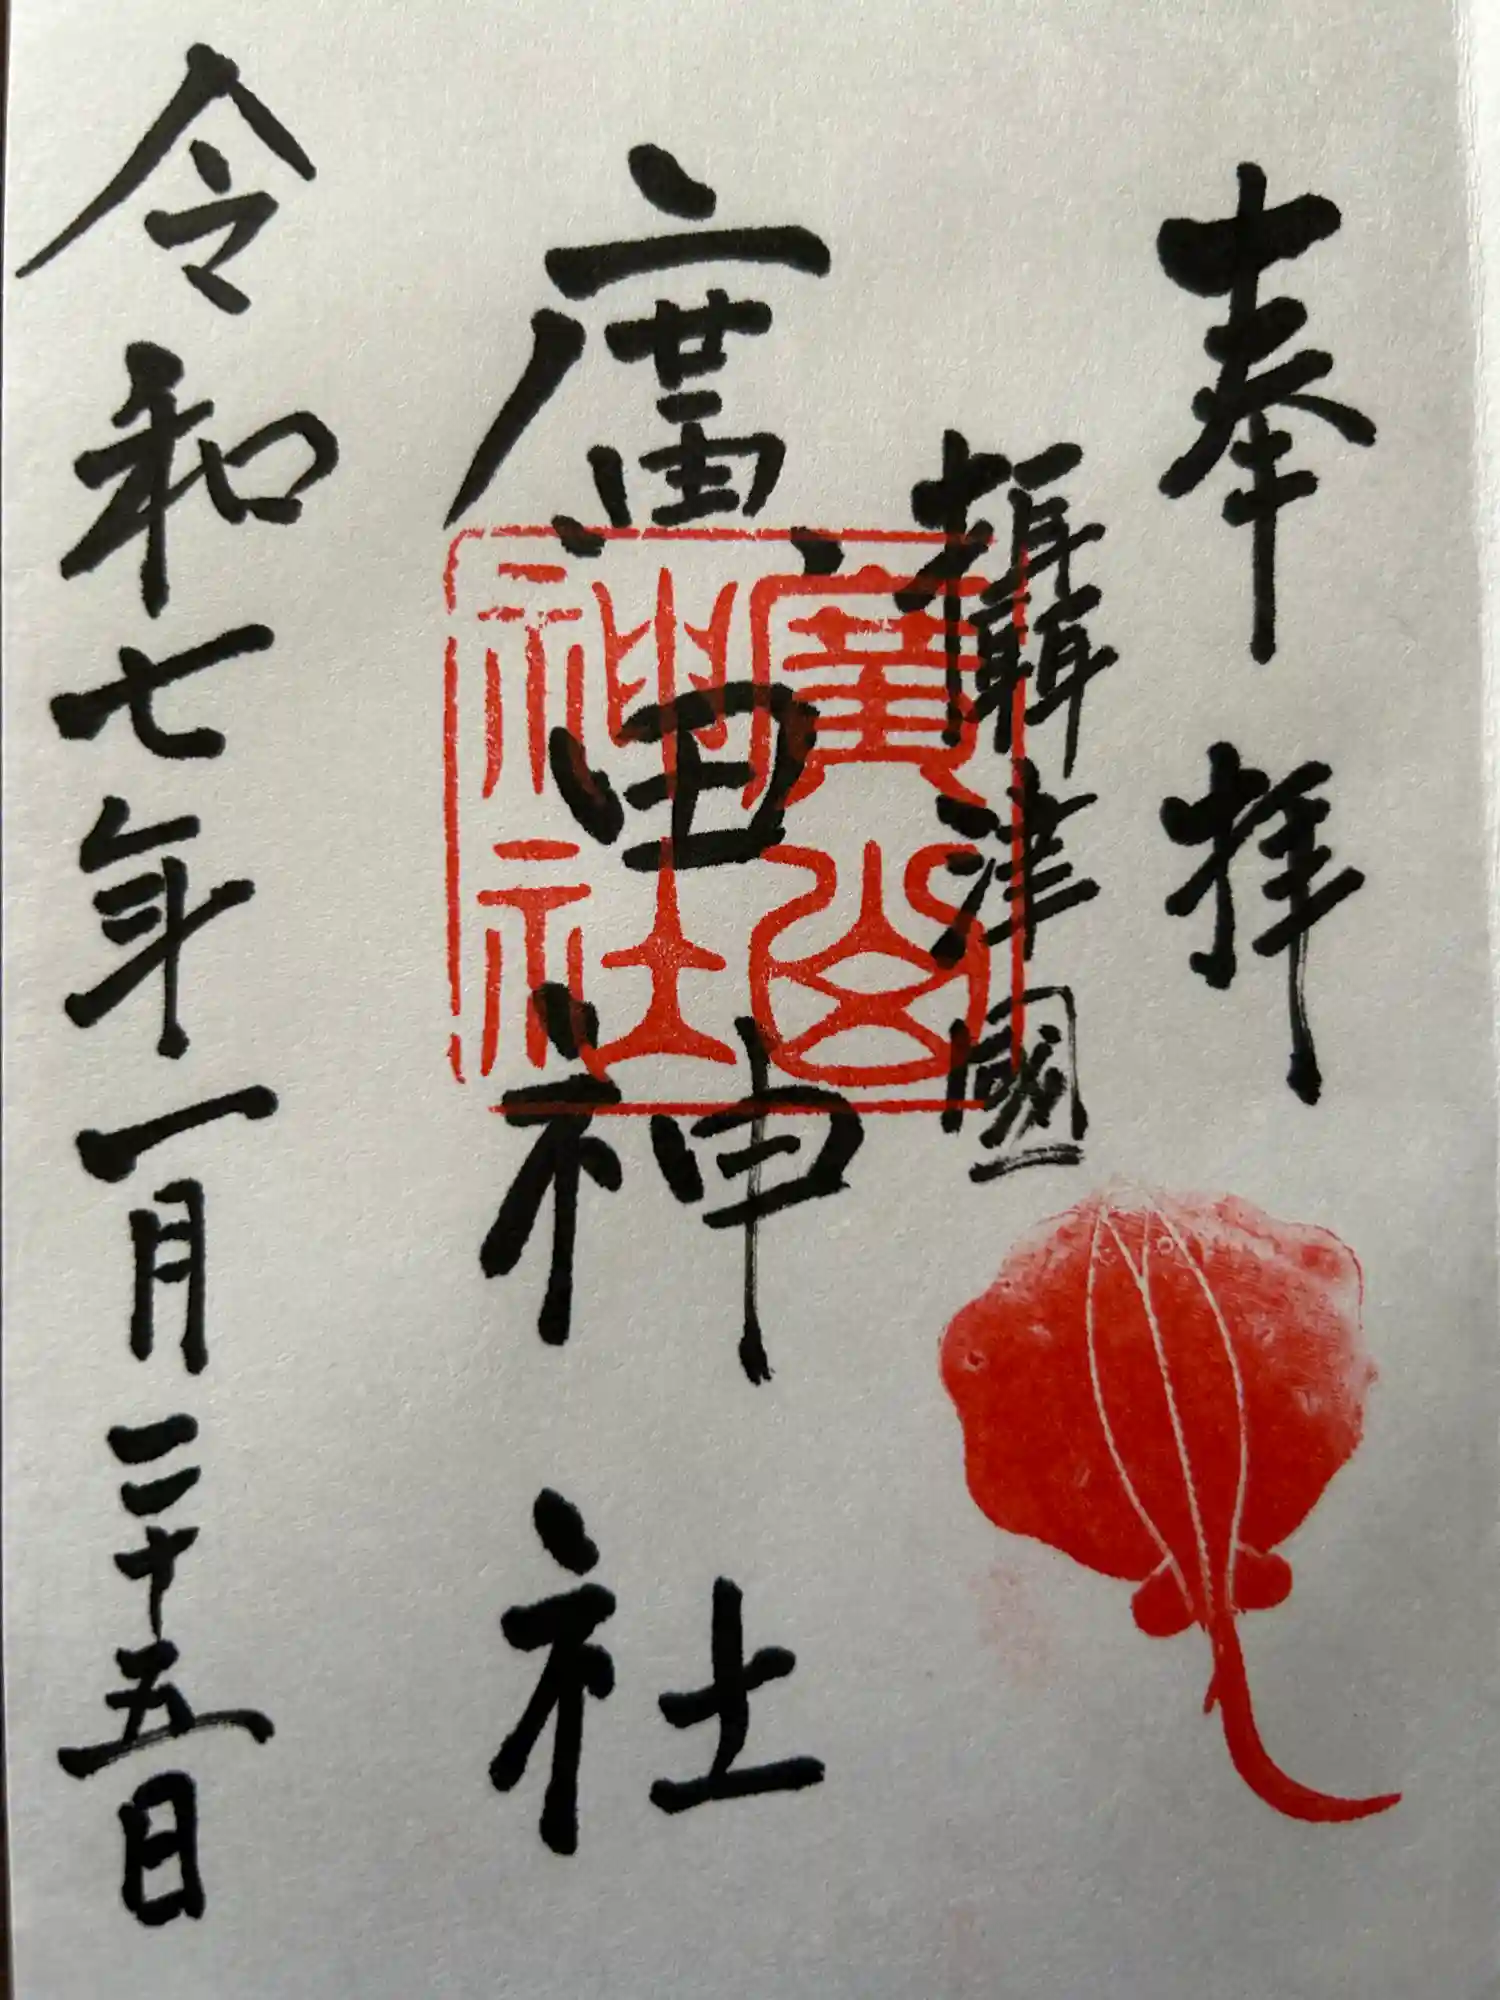 奉拝
攝津國
廣田神社
令和七年一月二十五日
廣
神社